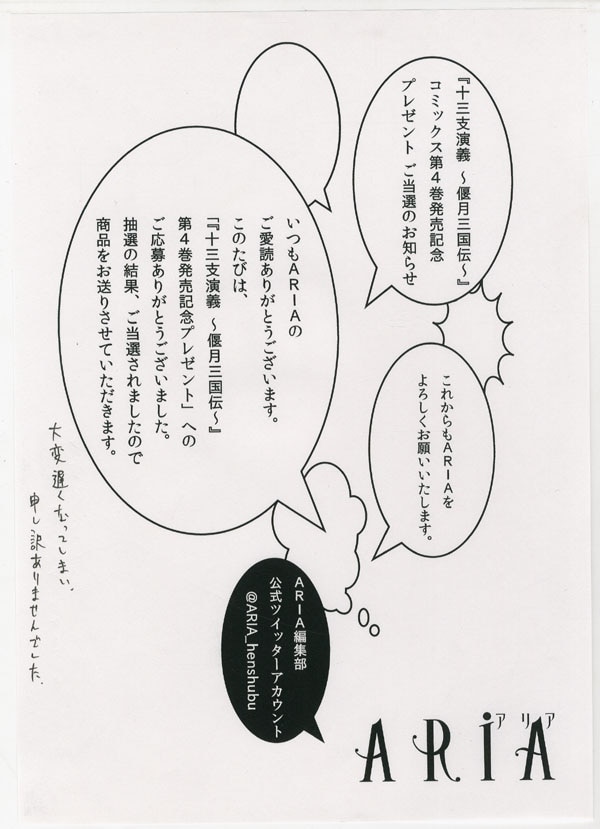 『十三支演義　～偃月三国伝～』
コミックス第４巻発売記念
プレゼント ご当選のお知らせ
いつもＡＲＩＡの
ご愛読ありがとうございます。
このたびは、
「『十三支演義　～偃月三国伝～』
第４巻発売記念プレゼント」への
ご応募ありがとうございました。
抽選の結果、ご当選されましたので
商品をお送りさせていただきます。
これからもＡＲＩＡを
よろしくお願いいたします。
大変遅くなってしまい、
申し訳ありませんでした。
ＡＲＩＡ編集部
公式ツイッターアカウント
@ARIA_henshubu
アリア
ARiA